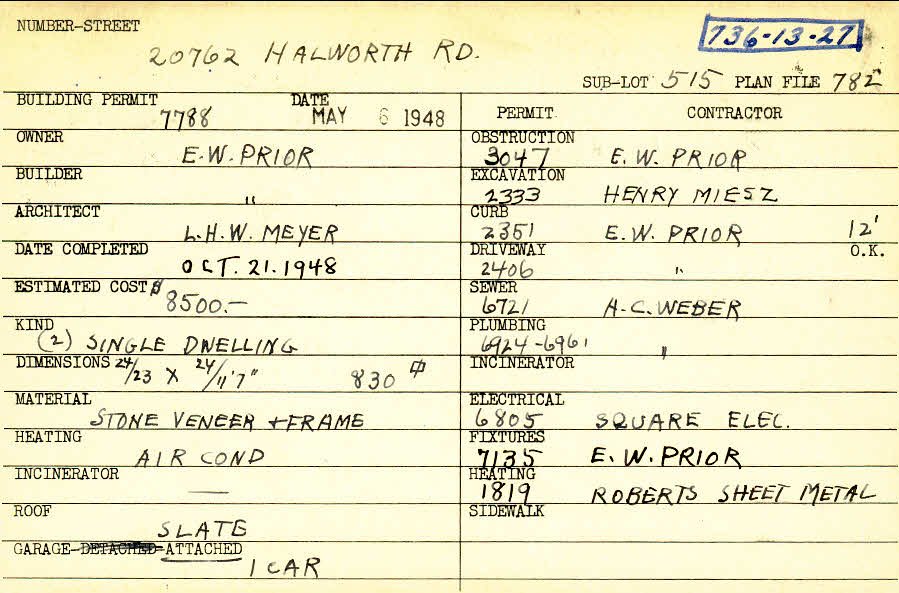 NUMBER-STREET
736-13-27
20762 HALWORTH RD.
SUB-LOT 515 PLAN FILE 782
BUILDING PERMIT DATE
7788 MAY 6 1948
OWNER
E.W. PRIOR
BUILDER
"
ARCHITECT
L.H.W. MEYER
DATE COMPLETED
OCT. 21. 1948
ESTIMATED COST $
8500.—
KIND
(2) SINGLE DWELLING
DIMENSIONS 24/23 X 24/11'7" 830
MATERIAL
STONE VENEER + FRAME
HEATING
AIR COND
INCINERATOR
—
ROOF
SLATE
GARAGE-DETACHED-ATTACHED
1 CAR
PERMIT CONTRACTOR
OBSTRUCTION
3047 E. W. PRIOR
EXCAVATION
2333 HENRY MIESZ
CURB
2351 E. W. PRIOR 12'
DRIVEWAY O.K.
2406 "
SEWER
6721 A.C. WEBER
PLUMBING
6924-6961 "
INCINERATOR
ELECTRICAL
6805 SQUARE ELEC.
FIXTURES
7135 E. W. PRIOR
HEATING
1819 ROBERTS SHEET METAL
SIDEWALK